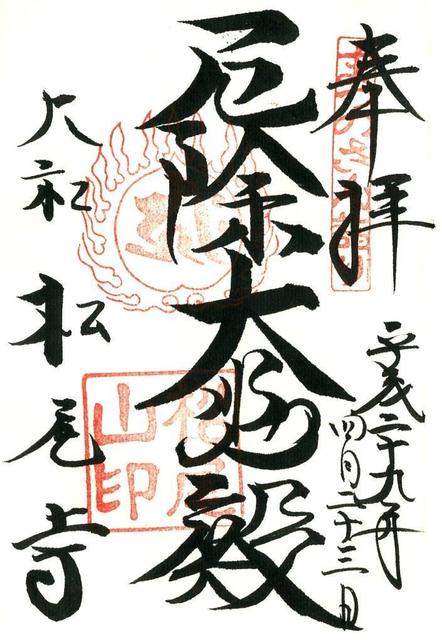 奉拝
平成二十九年
四月二十三日
厄除大悲殿
大和 松尾寺
松尾山印